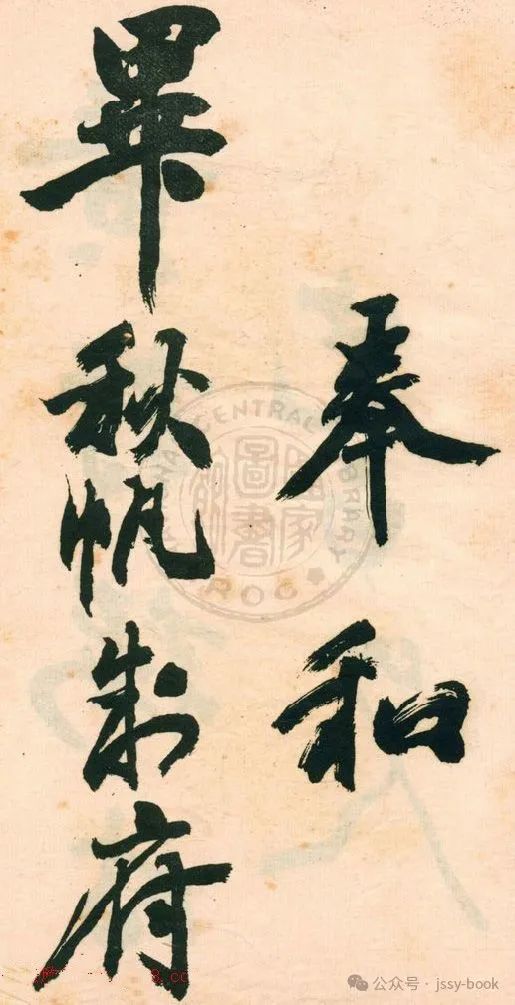 奉和
畢秋帆制府
國家圖書館
NATIONAL CENTRAL LIBRARY
ROC
8.cc
公众号 · jssy-book